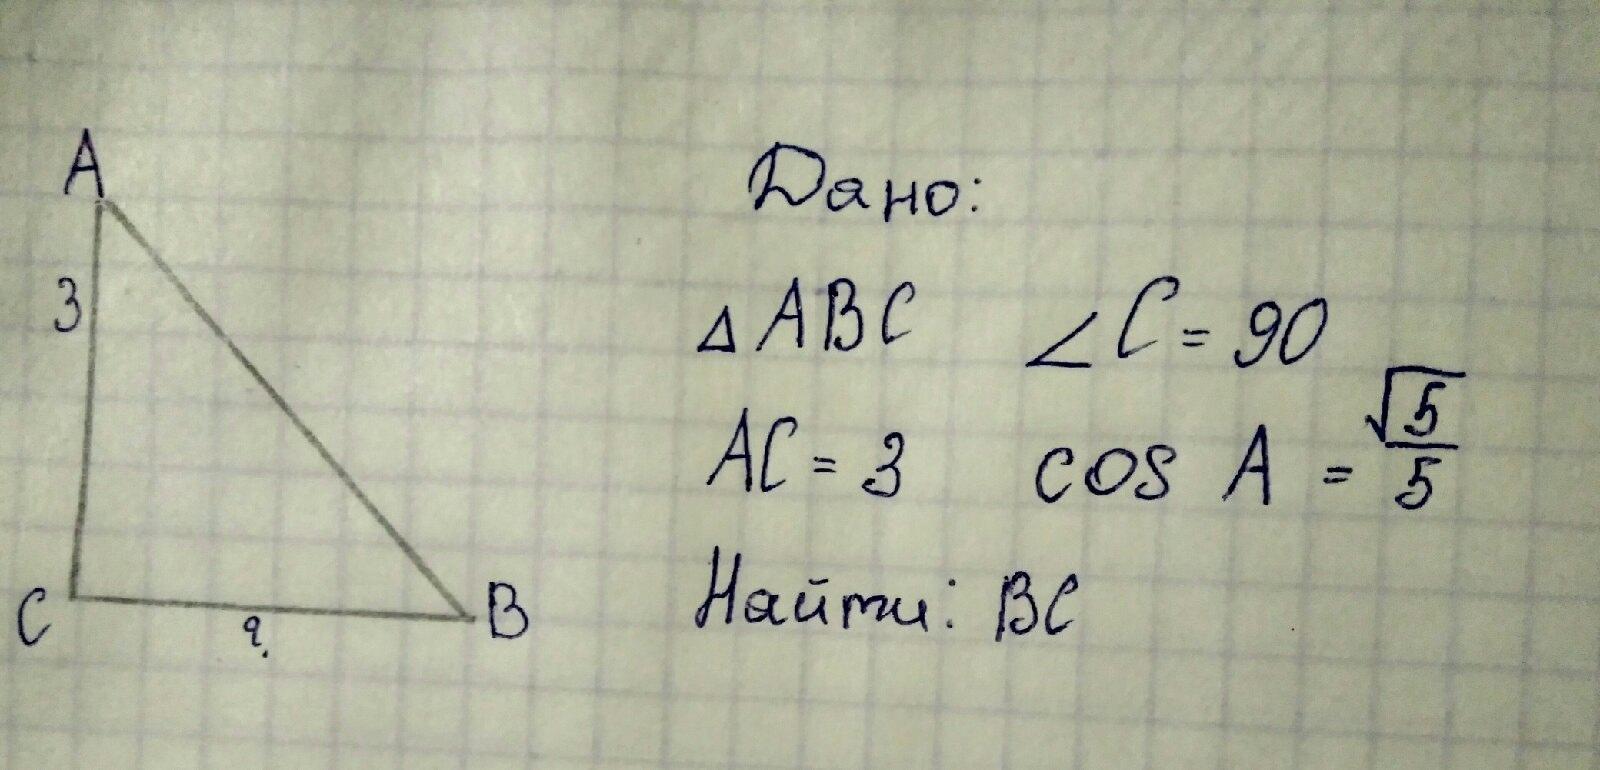 A
3
C
?
B
Дано:
△ABC ∠C = 90
AC = 3 cos A = √5/5
Найти: BC